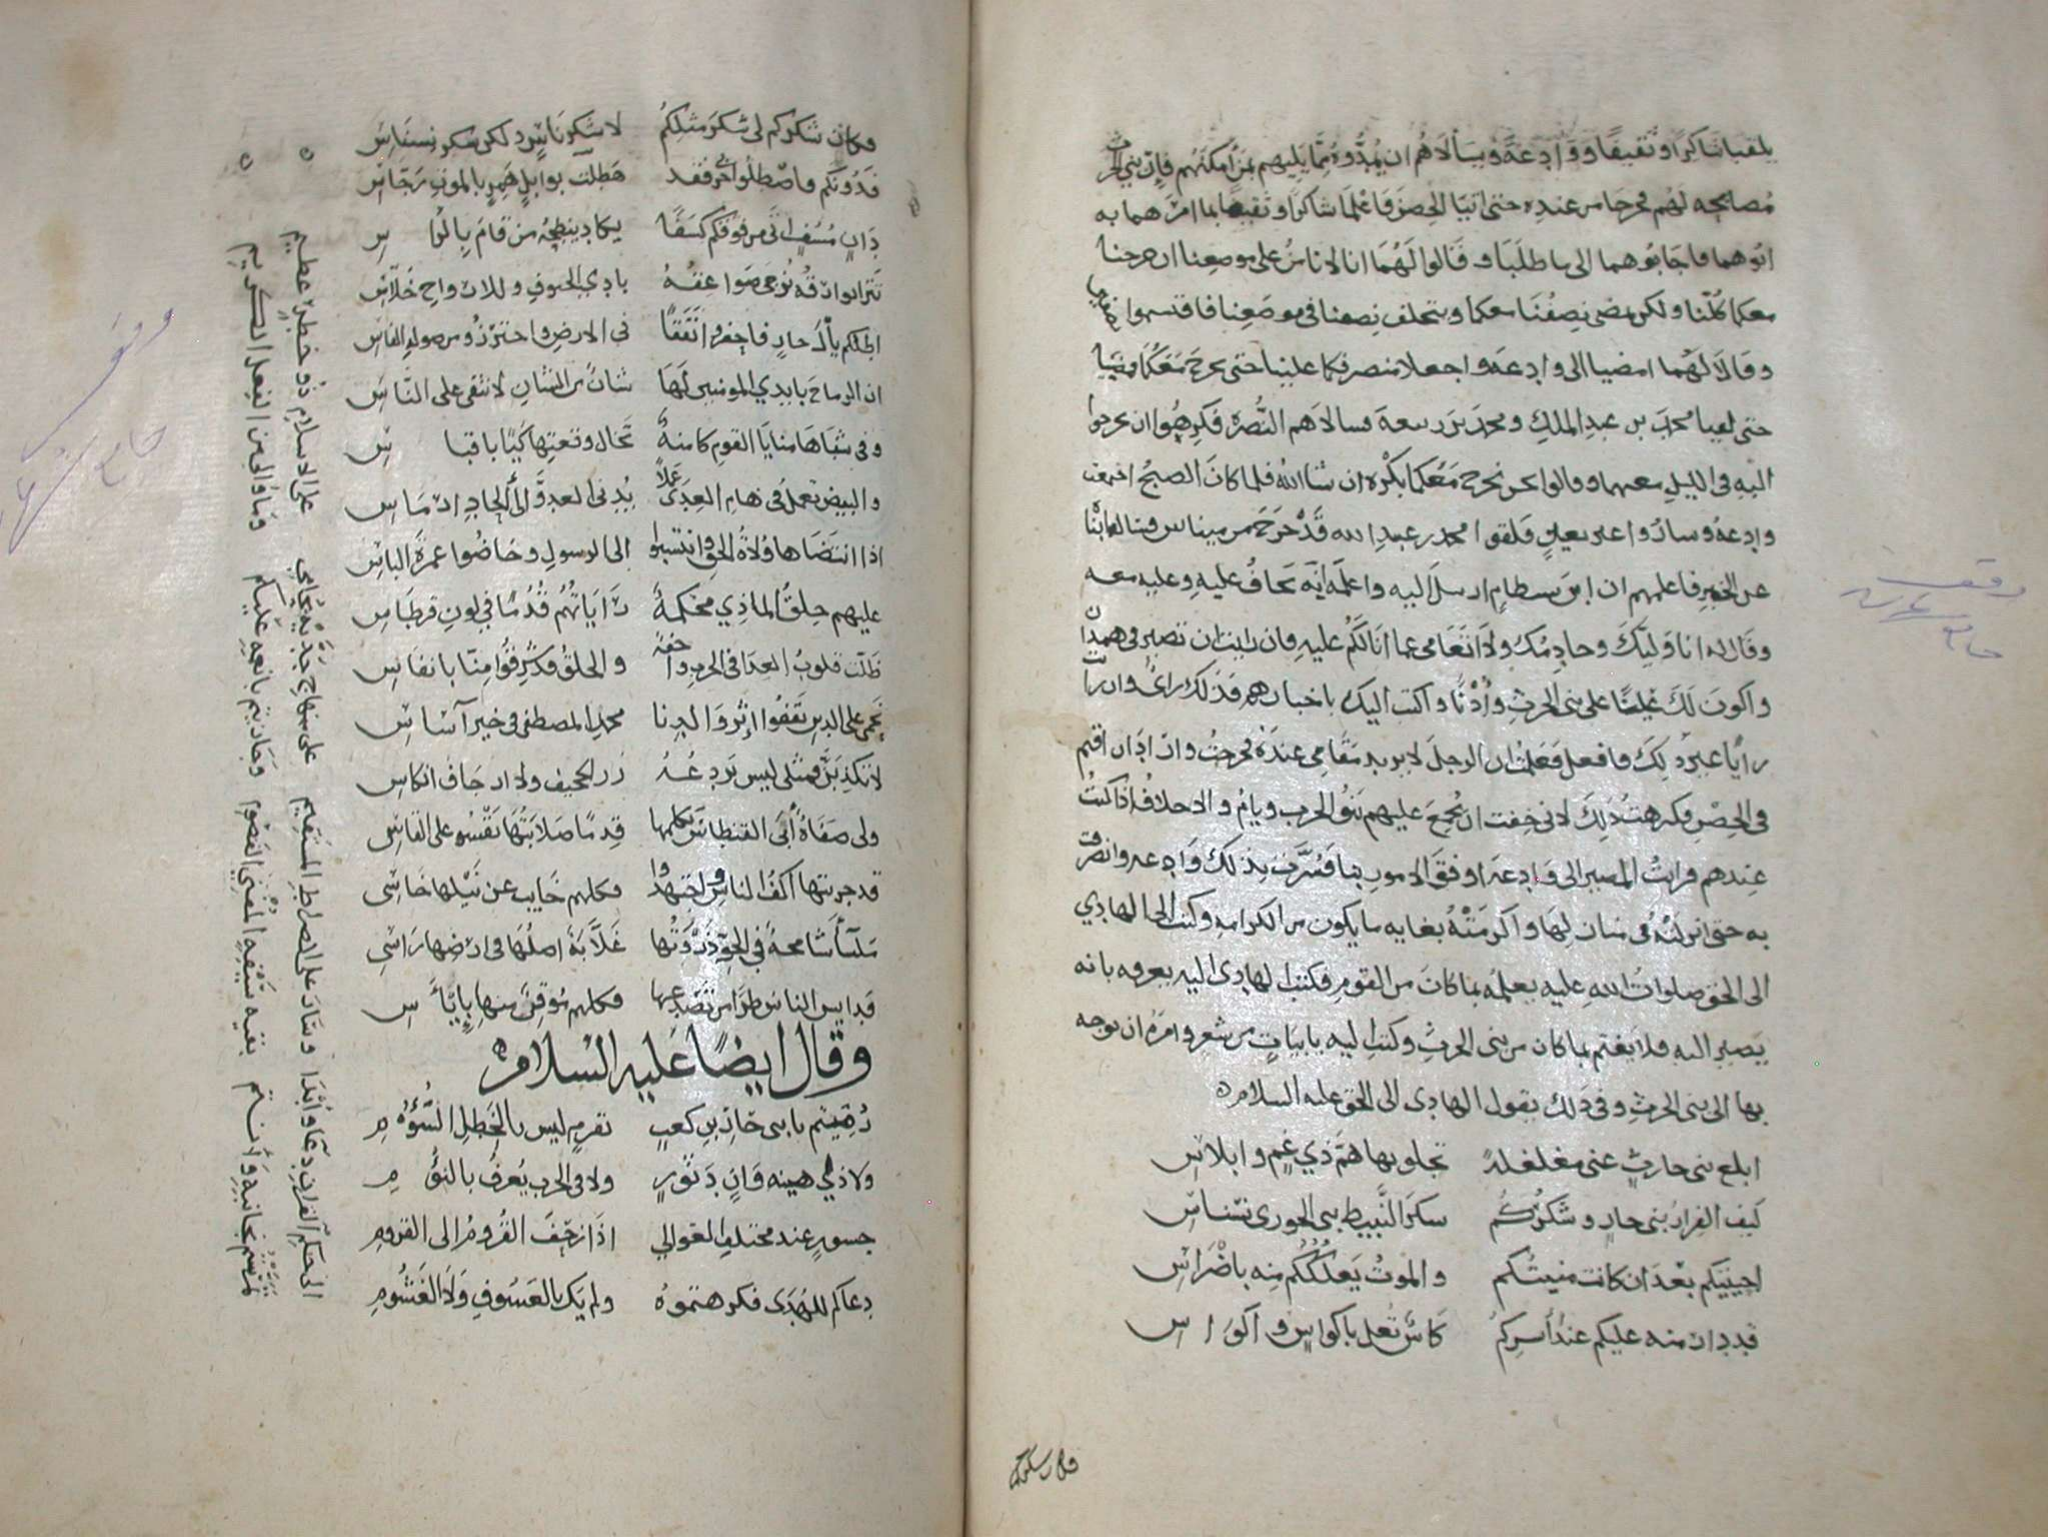 يلقيا شاكرًا وثقيفًا ووادعة ويسألاهم ان يمدوه بما يليهم بمن امكنهم فإن بني الحرث
مصالحه لهم فخرجا من عنده حتى اتيا الحصن فاعلما شاكرًا وثقيفا بما امرهما به
ابوهما فاجابوهما الى ما طلبا وقالوا لهما انا لا نامن على موضعنا ان خرجنا
معكما كلنا ولكن يمضي نصفنا معكما ويتخلف نصفنا في موضعنا فاقتسموا
وقالا لهما امضيا الى وادعه واجعلا منصرفكما علينا حتى نخرج معكما فمضيا
حتى لقيا محمد بن عبد الملك ومحمد بن ربيعة فسالاهم النصرة فكرهوا ان يخرجوا
اليه في الليل معهما وقالوا نحن نخرج معكما بكره ان شا الله فلما كان الصبح اجتمعت
وادعه وساروا فلقوا محمد بن عبيد الله قد خرج من ميناس فسالهما
عن الخبر فاعلمهم ان ابن بسطام ارسل اليه واعلمه انه يخاف عليه وعلى من معه
وقال له انا وليك وخادمك ولا تتعامى عما انا لكم عليه فان رايت ان تصير في همدان
واكون لك عينا على بني الحرث وأذنًا واكتب اليك باخبارهم فذلك رائي وان رايت
رأيا غير ذلك فافعل فعلمت ان الرجل لا يريد مقامي عنده فخرجت وارادان اقيم
في الحصن فكرهت ذلك لاني خفت ان يجمع عليهم بنو الحرب ويام والاحلاف اذا كنت
عندهم فرايت المصير الى وادعه اوفق الامور بنا فسرت بذلك وادعه وانصرفت
به حتى انزلته في منازلها واكرمته بغايه ما يكون من الكرامه وكتب الى الهادي
الى الحق صلوات الله عليه يعلمه بما كان من القوم فكتب الهادي اليه يعرفه بانه
يصير اليه فلا يغتم بما كان من بني الحرث وكتب اليه بابيات من شعر وامره ان يوجه
بها الى بني الحرث وفي ذلك يقول الهادي الى الحق عليه السلام
ابلغ بني حارث عني مغلغلة تجلو بها هم ذي غم وابلاس
كيف الفرار بني حار وشكركم سكر النبيط بني الحوري نسناس
احييتكم بعد ان كانت منيتكم والموت يعلككم منه باضراس
قد دارت منه عليكم عند أسركم كاس تعل باكواس واكواس
فكان شكركم
فكان شكركم لي شكر مثلكم لا شكر ناس ولكن شكر نسناس
فدونكم فاصطلوا حربي فقد هطلت بوابل همر بالموت رجاس
دان مسف اتى من فوقكم كسفًا يكاد ينطحه من قام بالراس
تترا بوارقه توحى صواعقه بادي الحتوف وللارواح خلاس
اظلكم يال حار فاحفروا نفقًا في الارض واحترزوا من صوله الفاس
ان الرماح بايدي المومنين لها شان من الشان لا تبقى على الناس
وفي شباها منايا القوم كامنة تخال وقعتها كيًا باقباس
والبيض تعمل في هام العدى عملًا يدني العدو الى الحاد ارماس
اذا انتضاها ولاة الحق وانتسبوا الى الرسول وخاضوا غمرة الباس
عليهم حلق الماذي محكمة راياتهم قدمًا في لون قرطاس
ظلت قلوب العدا في الحرب واجفة والحلق قد شرقوا منا بانفاس
نحمى على الدين نقفوا إثر والدنا محمد المصطفى في خير آساس
لا تكذبن فمثلي ليس يردعه زر الحجيف ولا ارجاف انكاس
ولي صفاة أبى القنطاس يكلمها قدما صلابتها تقسو على القاس
قد جربتها اكف الناس واجتهدوا فكلهم خايب عن نيلها خاشي
ملسأ شامخة في الحق ذروتها غلابة اصلها في ارضها راسي
قد ايس الناس طرا من تصدعها فكلهم موقن منها بإياس
وقال ايضًا عليه السلام
رميتم يا بني حار بن كعب بقرم ليس بالخطل السؤوم
ولا ذي هينه وان دثور ولا في الحرب يعرف بالنؤوم
جسور عند مختلف العوالي اذا زحف القروم الى القروم
دعاكم للهدى فكرهتموه ولم يك بالعسوف ولا الغشوم
الى حكم القران دعا وابدا وسار على الصراط المستقيم على منهاج جد يحابي على الاسلام ذو خطر عظيم
لمستم جانبيه ولانستم بقيه سيفه المفني الغصوم وجازيتم بانعمه عليكم وما والحر من الفعل الكريم